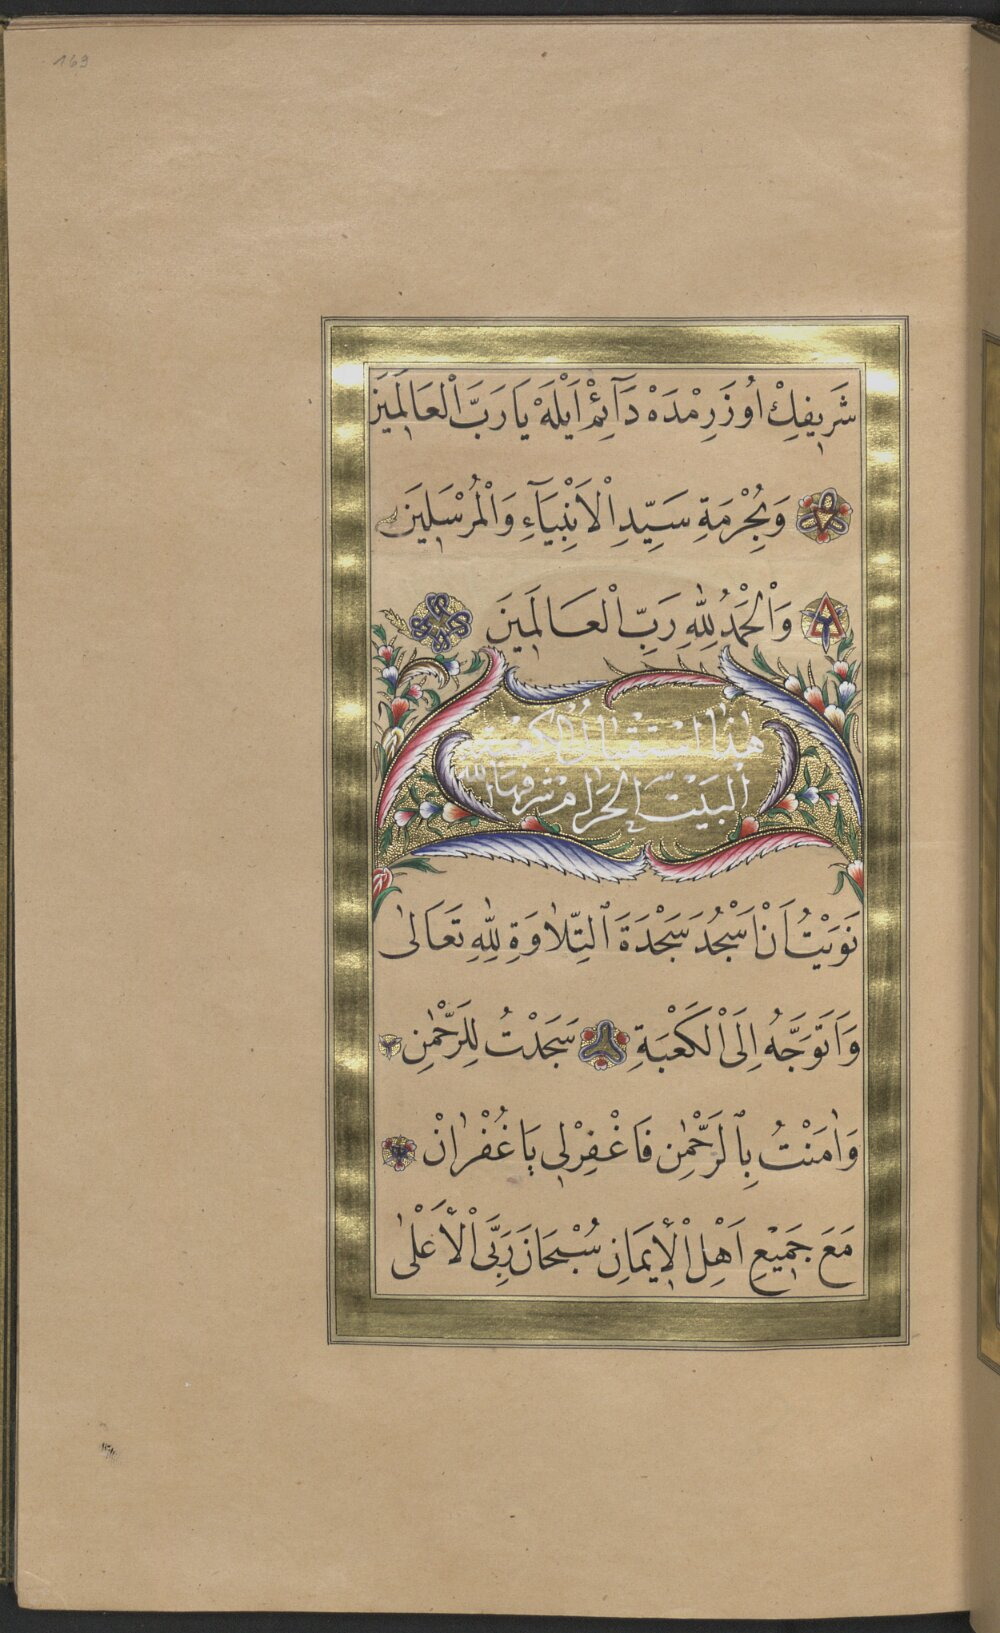 169
شَرِيفِكْ اُوزَرِمْدَهْ دَآئِمْ اَيْلَهْ يَا رَبَّ الْعَالَمِينَ
وَبِحُرْمَةِ سَيِّدِ الْاَنْبِيَآءِ وَالْمُرْسَلِينَ
وَالْحَمْدُ لِلّٰهِ رَبِّ الْعَالَمِينَ
هٰذَا اسْتِقْبَالُ الْكَعْبَةِ
الْبَيْتِ الْحَرَامِ شَرَّفَهَا اللّٰه
نَوَيْتُ اَنْ اَسْجُدَ سَجْدَةَ التِّلَاوَةِ لِلّٰهِ تَعَالٰى
وَاَتَوَجَّهُ اِلَى الْكَعْبَةِ سَجَدْتُ لِلرَّحْمٰنِ
وَاٰمَنْتُ بِالرَّحْمٰنِ فَاغْفِرْلِى يَا غُفْرَانْ
مَعَ جَمِيْعِ اَهْلِ الْاِيمَانِ سُبْحَانَ رَبِّىَ الْاَعْلٰى